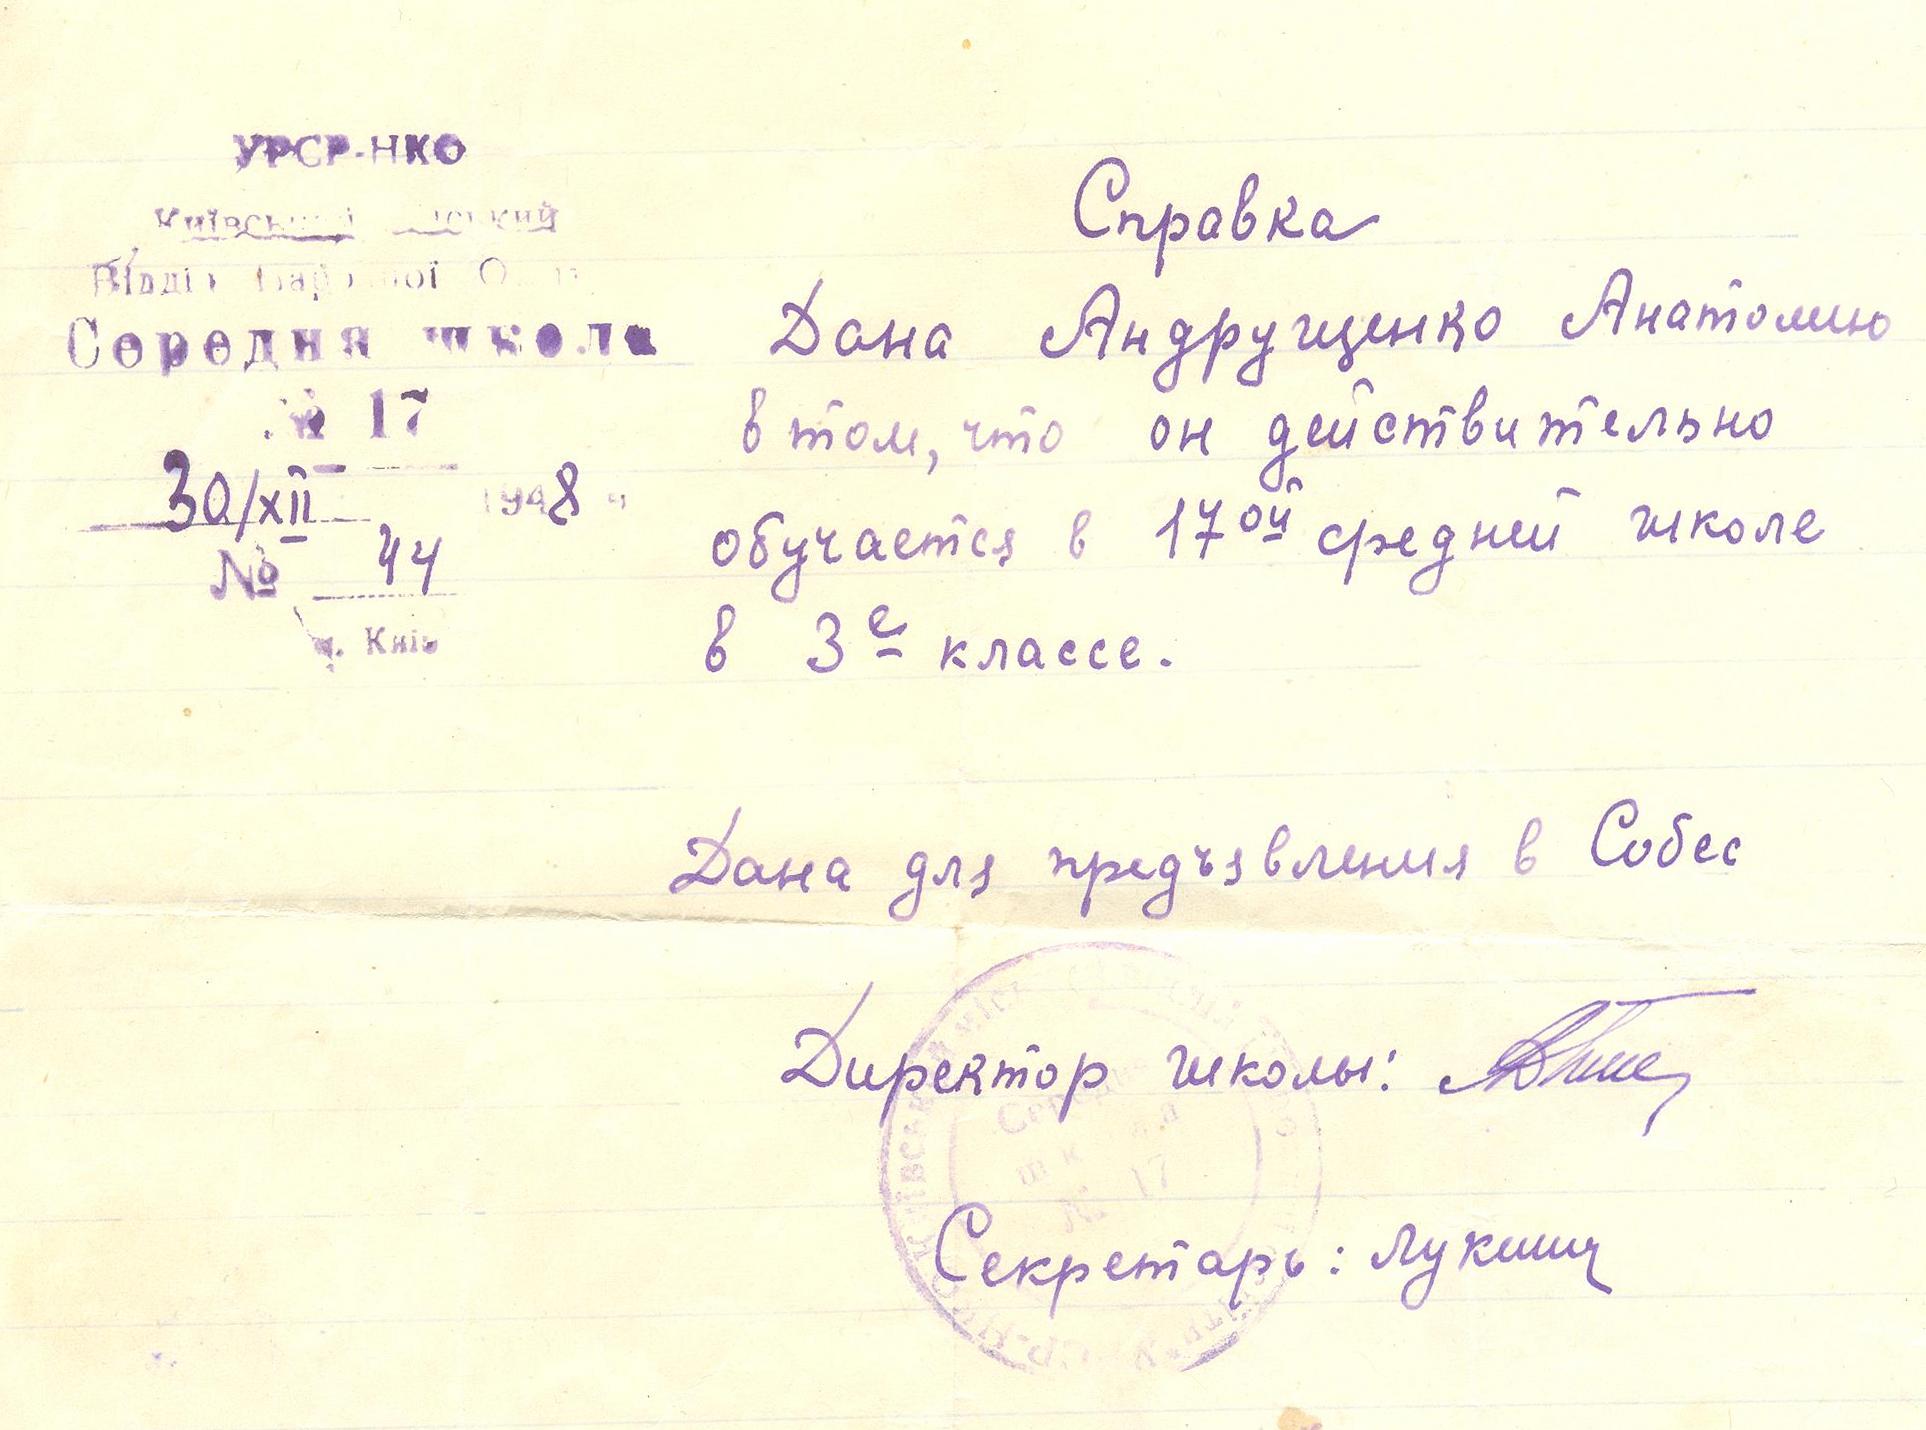 УРСР-НКО
Середня школа
№ 17
30/XII 1948
№ 44
м. Київ
Справка
Дана Андрущенко Анатолию
в том, что он действительно
обучается в 17ой средней школе
в 3е классе.
Дана для предъявления в Собес
Директор школы:
Секретарь:
Середня
школа
№ 17